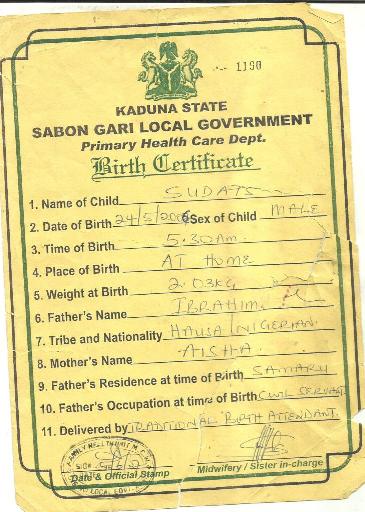 1190
KADUNA STATE
SABON GARI LOCAL GOVERNMENT
Primary Health Care Dept.
Birth Certificate
1. Name of Child SUDAIS
2. Date of Birth 24/5/2006 Sex of Child MALE
3. Time of Birth 5.30am
4. Place of Birth AT HOME
5. Weight at Birth 2.03KG
6. Father's Name IBRAHIM
7. Tribe and Nationality HAUSA NIGERIAN
8. Mother's Name AISHA
9. Father's Residence at time of Birth SAMARU
10. Father's Occupation at time of Birth CIVIL SERVANT
11. Delivered by TRADITIONAL BIRTH ATTENDANT
Date & Official Stamp Midwifery / Sister in-charge